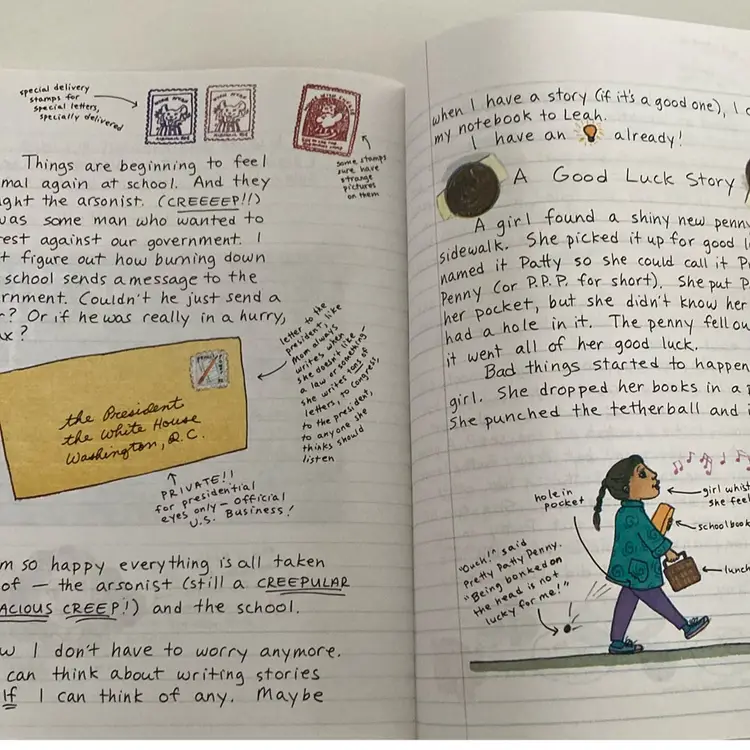 special delivery
stamps for
special letters,
specially delivered
some stamps
sure have
strange
pictures
on them
Things are beginning to feel
mal again at school. And they
ght the arsonist. (CREEEEP!!)
was some man who wanted to
rest against our government. I
t figure out how burning down
school sends a message to the
rnment. Couldn't he just send a
r? Or if he was really in a hurry,
ax?
letter to the
president, like
Mom always
writes when
she doesn't like
a law or something—
she writes tons of
letters, to Congress,
to the president,
to anyone she
thinks should
listen
the President
the White House
Washington, D.C.
PRIVATE!!
for presidential
eyes only—official
U.S. Business!
m so happy everything is all taken
of — the arsonist (still a CREEPULAR
ACIOUS CREEP!) and the school.
w I don't have to worry anymore.
can think about writing stories
If I can think of any. Maybe
when I have a story (if it's a good one), I
my notebook to Leah.
I have an already!
A Good Luck Story
A girl found a shiny new penny
sidewalk. She picked it up for good l
named it Patty so she could call it P
Penny (or P.P.P. for short). She put P
her pocket, but she didn't know her
had a hole in it. The penny fell ou
it went all of her good luck.
Bad things started to happen
girl. She dropped her books in a p
She punched the tetherball and i
hole in
pocket
girl whist
she feel
school book
lunch
"Ouch!" said
Pretty Patty Penny.
"Being bonked on
the head is not
lucky for me!"